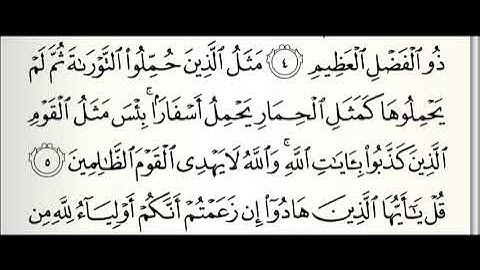 ذُو الْفَضْلِ الْعَظِيمِ ٤ مَثَلُ الَّذِينَ حُمِّلُوا التَّوْرَىٰةَ ثُمَّ لَمْ
يَحْمِلُوهَا كَمَثَلِ الْحِمَارِ يَحْمِلُ أَسْفَارًۢا ۚ بِئْسَ مَثَلُ الْقَوْمِ
الَّذِينَ كَذَّبُوا بِـَٔايَٰتِ اللَّهِ ۚ وَاللَّهُ لَا يَهْدِى الْقَوْمَ الظَّٰلِمِينَ ٥
قُلْ يَٰٓأَيُّهَا الَّذِينَ هَادُوٓا إِن زَعَمْتُمْ أَنَّكُمْ أَوْلِيَآءُ لِلَّهِ مِن